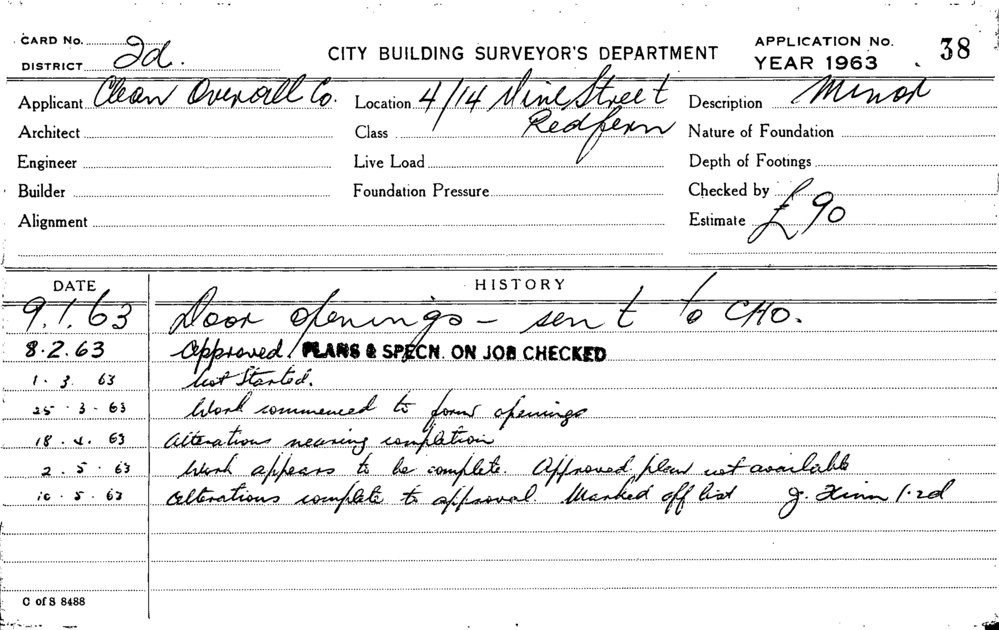 CARD No.
DISTRICT 2d.
CITY BUILDING SURVEYOR'S DEPARTMENT
APPLICATION No. 38
YEAR 1963
Applicant Clean Overall Co.
Location 4/14 Vine Street
Redfern
Description Minor
Architect
Class
Nature of Foundation
Engineer
Live Load
Depth of Footings
Builder
Foundation Pressure
Checked by
Alignment
Estimate £90
DATE HISTORY
9.1.63 Door openings - sent to CHO.
8.2.63 Approved / PLANS & SPECN. ON JOB CHECKED
1.3.63 Not Started.
25.3.63 Work commenced to form openings
18.4.63 Alterations nearing completion
2.5.63 Work appears to be complete. Approved plan not available
10.5.63 Alterations complete to approval. Marked off list J. 2d
C of S 8488